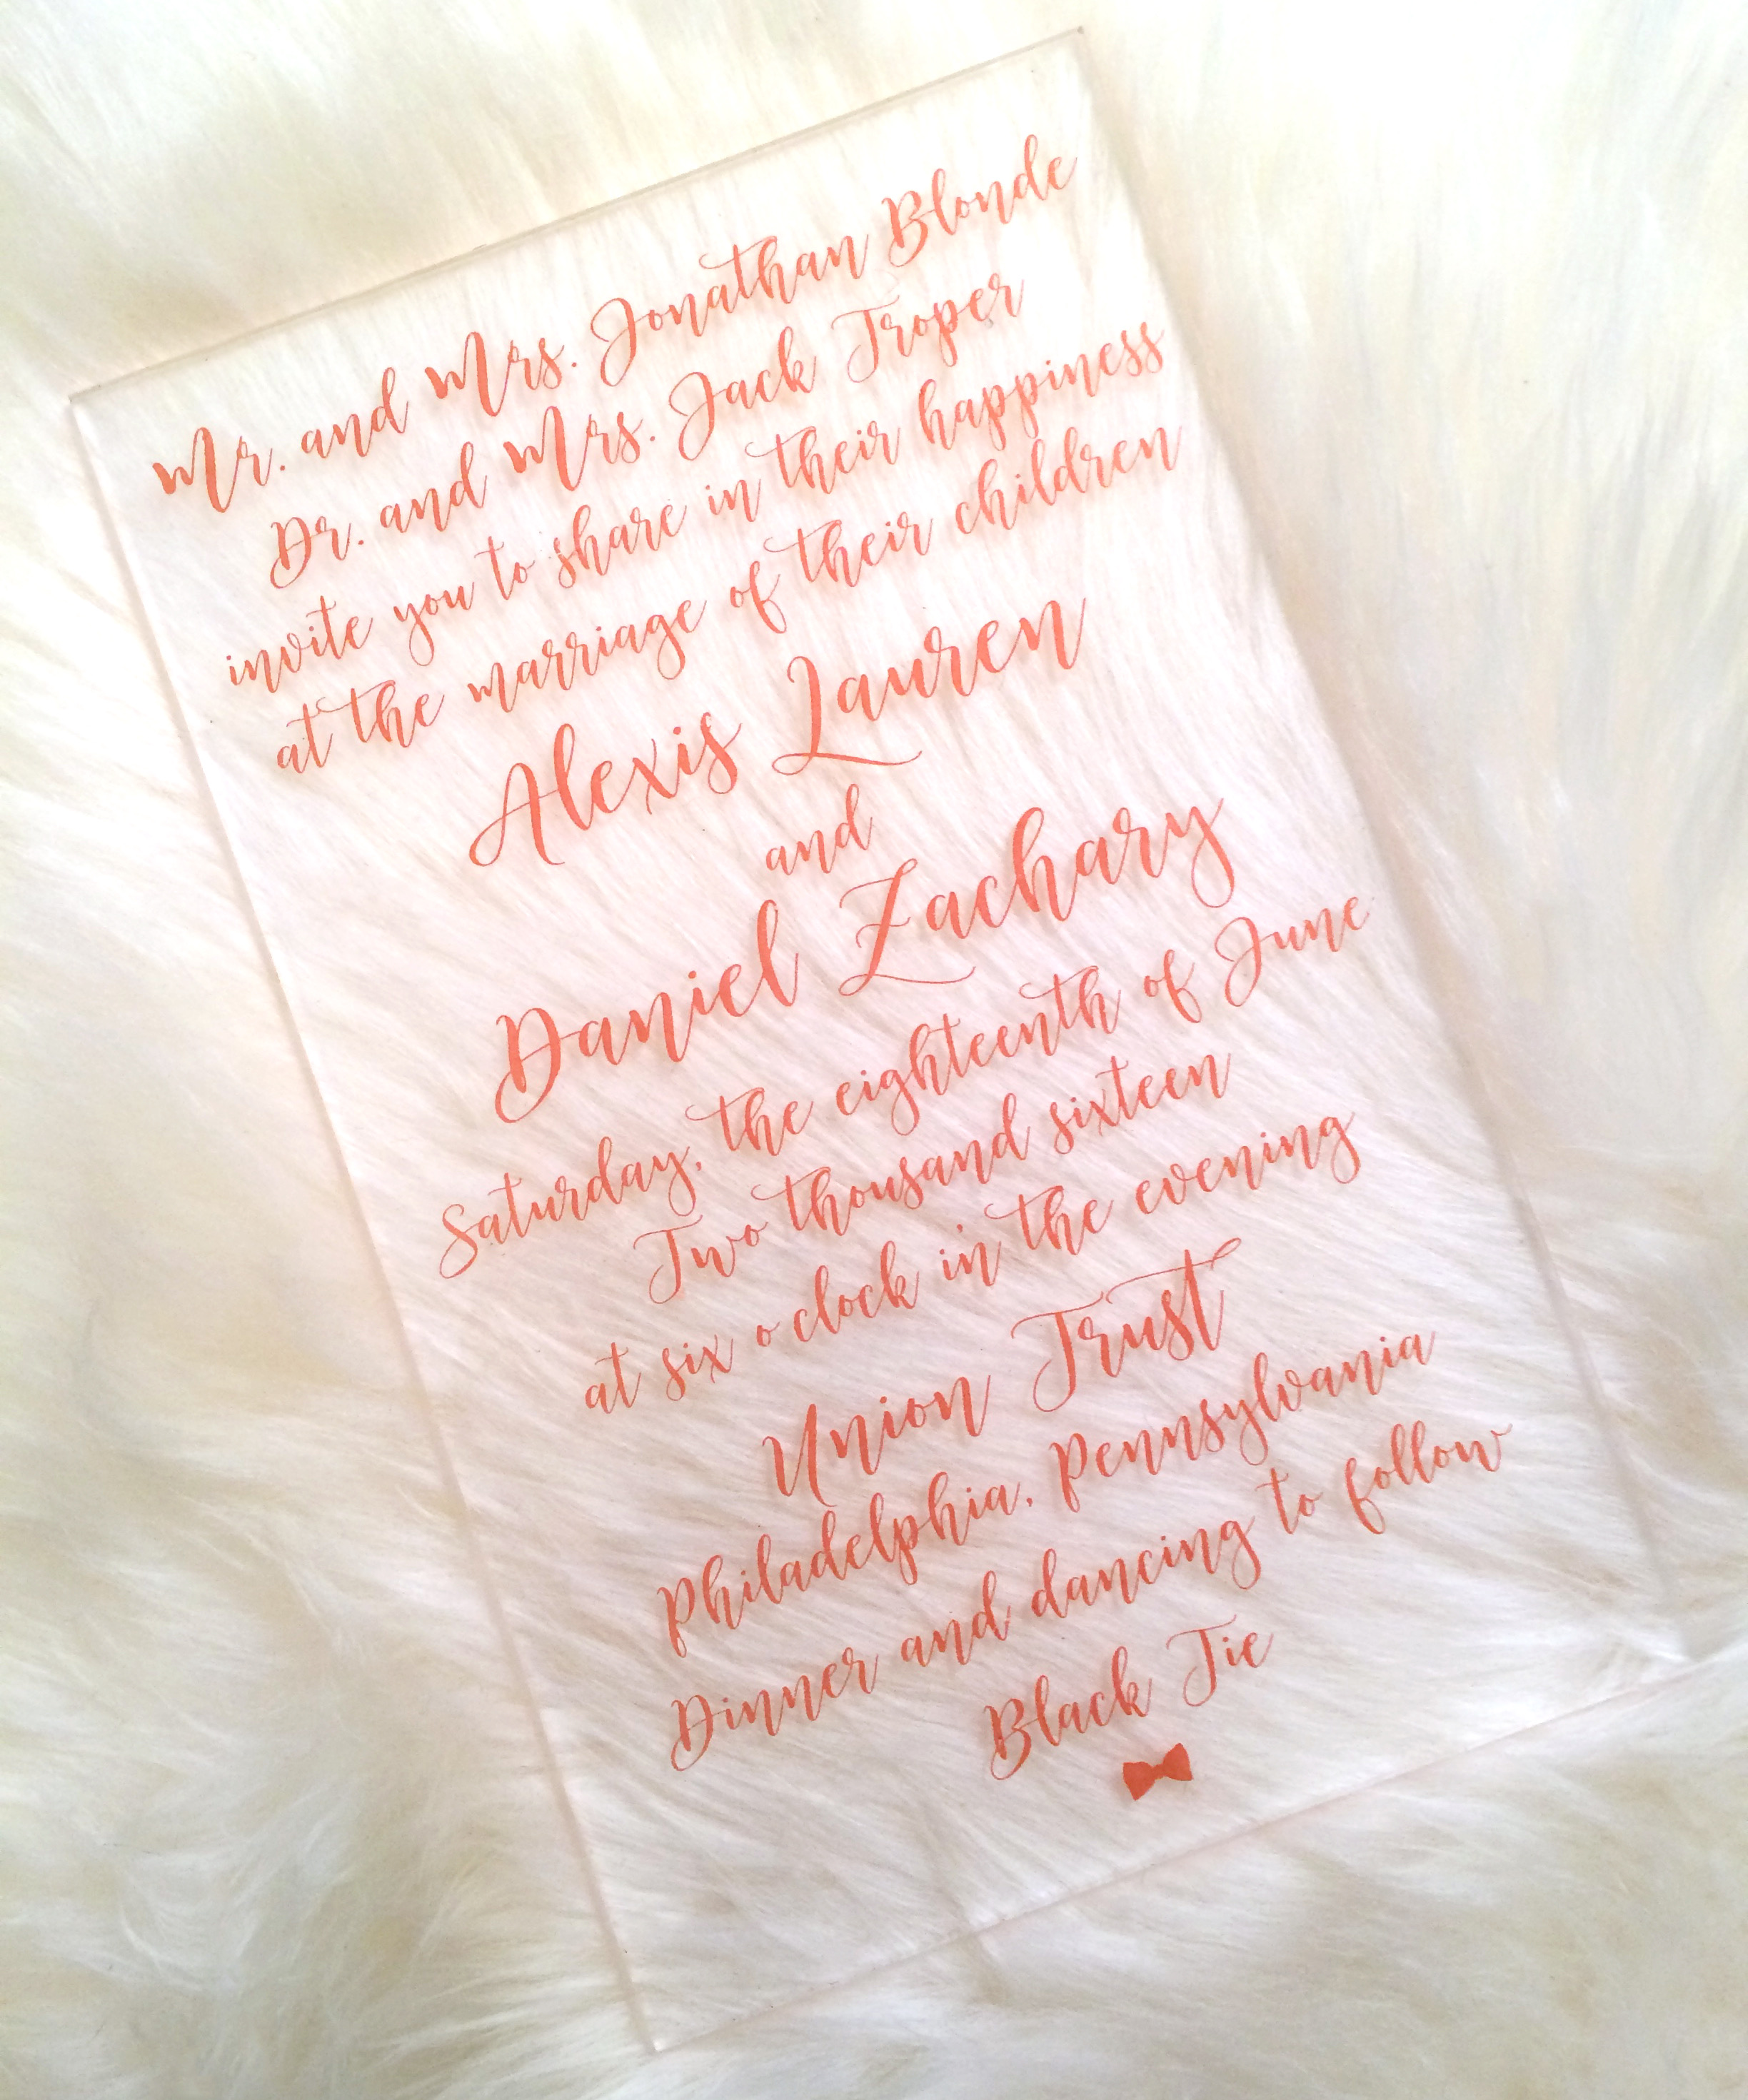 Mr. and Mrs. Jonathan Blonde
Dr. and Mrs. Jack Troper
invite you to share in their happiness
at the marriage of their children
Alexis Lauren
and
Daniel Zachary
Saturday, the eighteenth of June
Two thousand sixteen
at six o clock in the evening
Union Trust
Philadelphia, Pennsylvania
Dinner and dancing to follow
Black Tie